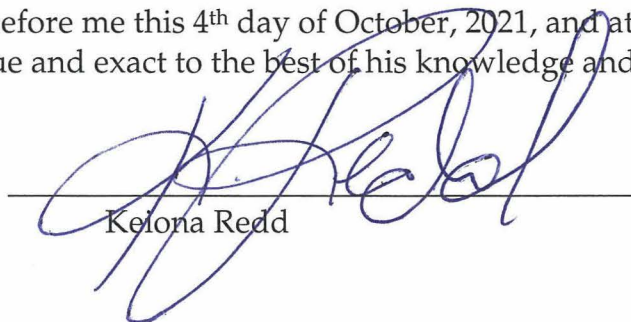 efore me this 4th day of October, 2021, and at
ue and exact to the best of his knowledge and
K Redd
Keiona Redd